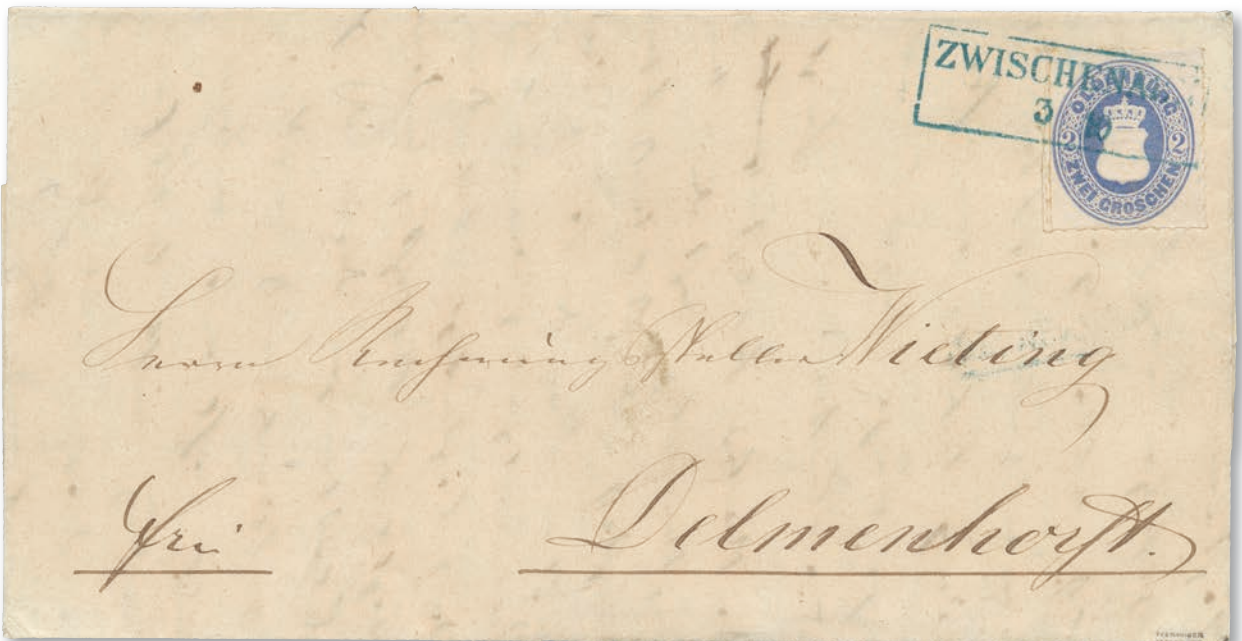 ZWISCHENA
3
OLDENBURG
2 2
ZWEI GROSCHEN
Herrn Rechnungssteller Wieting
frei Delmenhorst.